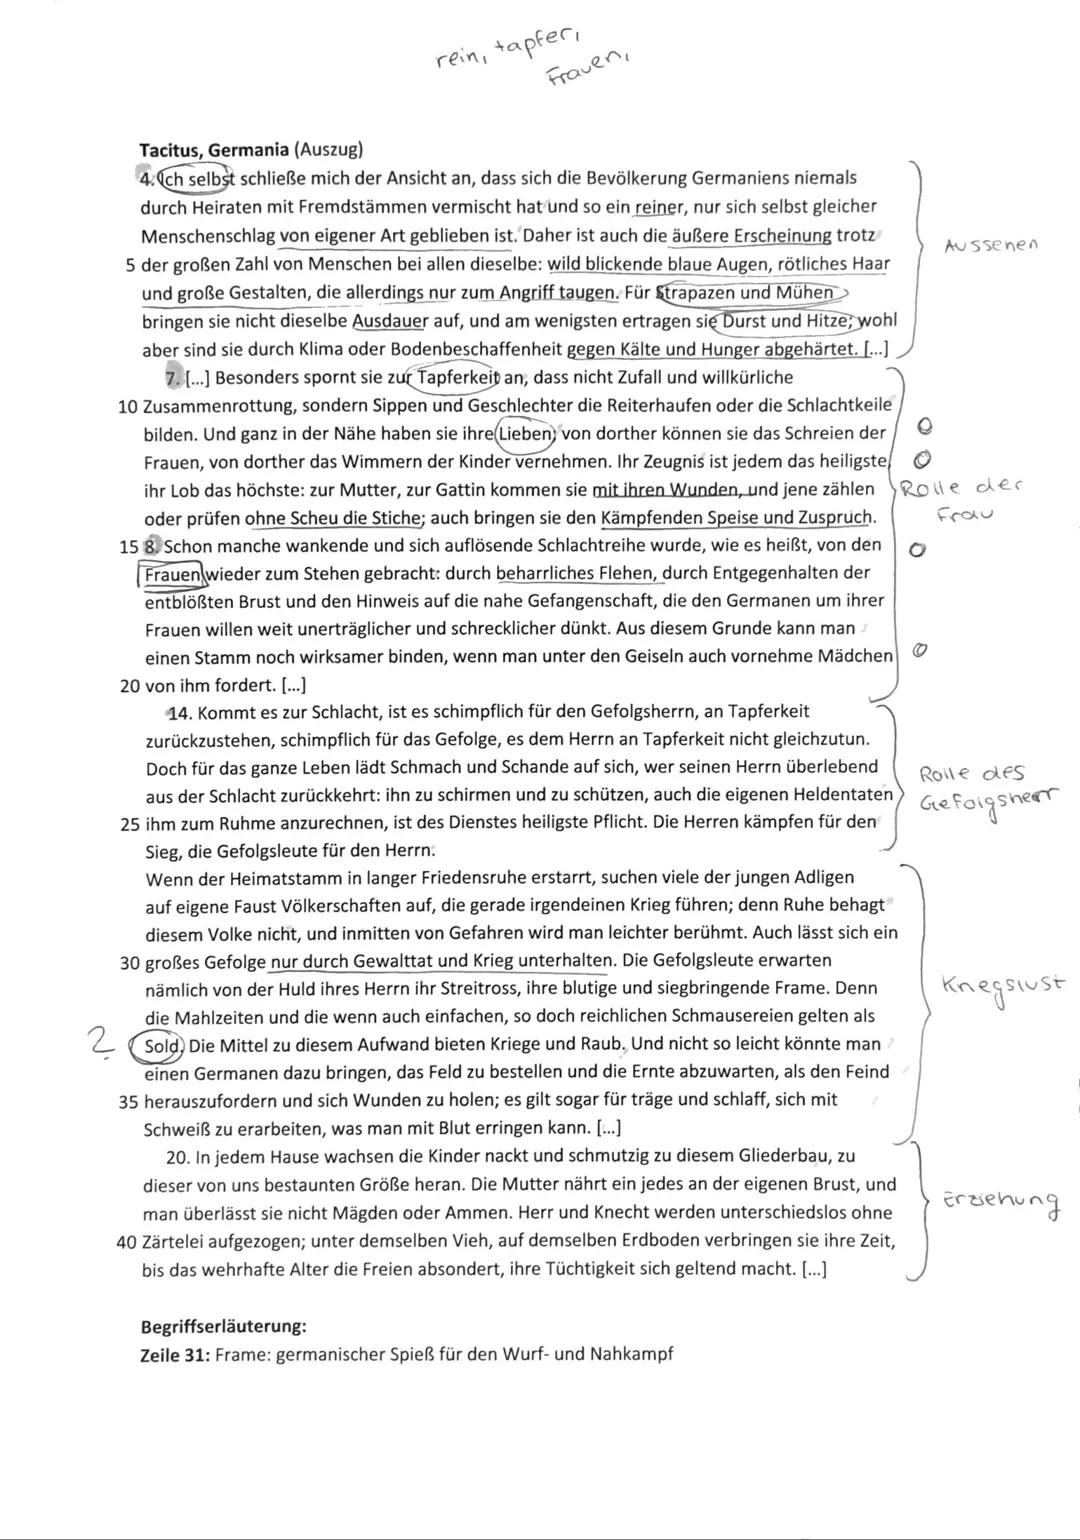 rein, tapfer,
Frauen,
Tacitus, Germania (Auszug)
4. Ich selbst schließe mich der Ansicht an, dass sich die Bevölkerung Germaniens niemals
durch Heiraten mit Fremdstämmen vermischt hat und so ein reiner, nur sich selbst gleicher
Menschenschlag von eigener Art geblieben ist. Daher ist auch die äußere Erscheinung trotz
Aussehen
5 der großen Zahl von Menschen bei allen dieselbe: wild blickende blaue Augen, rötliches Haar
und große Gestalten, die allerdings nur zum Angriff taugen. Für Strapazen und Mühen
bringen sie nicht dieselbe Ausdauer auf, und am wenigsten ertragen sie Durst und Hitze; wohl
aber sind sie durch Klima oder Bodenbeschaffenheit gegen Kälte und Hunger abgehärtet. [...]
7. [...] Besonders spornt sie zur Tapferkeit an, dass nicht Zufall und willkürliche
10 Zusammenrottung, sondern Sippen und Geschlechter die Reiterhaufen oder die Schlachtkeile
bilden. Und ganz in der Nähe haben sie ihre Lieben; von dorther können sie das Schreien der
Frauen, von dorther das Wimmern der Kinder vernehmen. Ihr Zeugnis ist jedem das heiligste,
ihr Lob das höchste: zur Mutter, zur Gattin kommen sie mit ihren Wunden, und jene zählen
Rolle der
Frau
oder prüfen ohne Scheu die Stiche; auch bringen sie den Kämpfenden Speise und Zuspruch.
15 8. Schon manche wankende und sich auflösende Schlachtreihe wurde, wie es heißt, von den
Frauen wieder zum Stehen gebracht: durch beharrliches Flehen, durch Entgegenhalten der
entblößten Brust und den Hinweis auf die nahe Gefangenschaft, die den Germanen um ihrer
Frauen willen weit unerträglicher und schrecklicher dünkt. Aus diesem Grunde kann man
einen Stamm noch wirksamer binden, wenn man unter den Geiseln auch vornehme Mädchen
20 von ihm fordert. [...]
14. Kommt es zur Schlacht, ist es schimpflich für den Gefolgsherrn, an Tapferkeit
zurückzustehen, schimpflich für das Gefolge, es dem Herrn an Tapferkeit nicht gleichzutun.
Doch für das ganze Leben lädt Schmach und Schande auf sich, wer seinen Herrn überlebend
Rolle des
Gefolgsherr
aus der Schlacht zurückkehrt: ihn zu schirmen und zu schützen, auch die eigenen Heldentaten
25 ihm zum Ruhme anzurechnen, ist des Dienstes heiligste Pflicht. Die Herren kämpfen für den
Sieg, die Gefolgsleute für den Herrn.
Wenn der Heimatstamm in langer Friedensruhe erstarrt, suchen viele der jungen Adligen
auf eigene Faust Völkerschaften auf, die gerade irgendeinen Krieg führen; denn Ruhe behagt
diesem Volke nicht, und inmitten von Gefahren wird man leichter berühmt. Auch lässt sich ein
30 großes Gefolge nur durch Gewalttat und Krieg unterhalten. Die Gefolgsleute erwarten
nämlich von der Huld ihres Herrn ihr Streitross, ihre blutige und siegbringende Frame. Denn
Kriegslust
die Mahlzeiten und die wenn auch einfachen, so doch reichlichen Schmausereien gelten als
? Sold. Die Mittel zu diesem Aufwand bieten Kriege und Raub. Und nicht so leicht könnte man
einen Germanen dazu bringen, das Feld zu bestellen und die Ernte abzuwarten, als den Feind
35 herauszufordern und sich Wunden zu holen; es gilt sogar für träge und schlaff, sich mit
Schweiß zu erarbeiten, was man mit Blut erringen kann. [...]
20. In jedem Hause wachsen die Kinder nackt und schmutzig zu diesem Gliederbau, zu
dieser von uns bestaunten Größe heran. Die Mutter nährt ein jedes an der eigenen Brust, und
Erziehung
man überlässt sie nicht Mägden oder Ammen. Herr und Knecht werden unterschiedslos ohne
40 Zärtelei aufgezogen; unter demselben Vieh, auf demselben Erdboden verbringen sie ihre Zeit,
bis das wehrhafte Alter die Freien absondert, ihre Tüchtigkeit sich geltend macht. [...]
Begriffserläuterung:
Zeile 31: Frame: germanischer Spieß für den Wurf- und Nahkampf